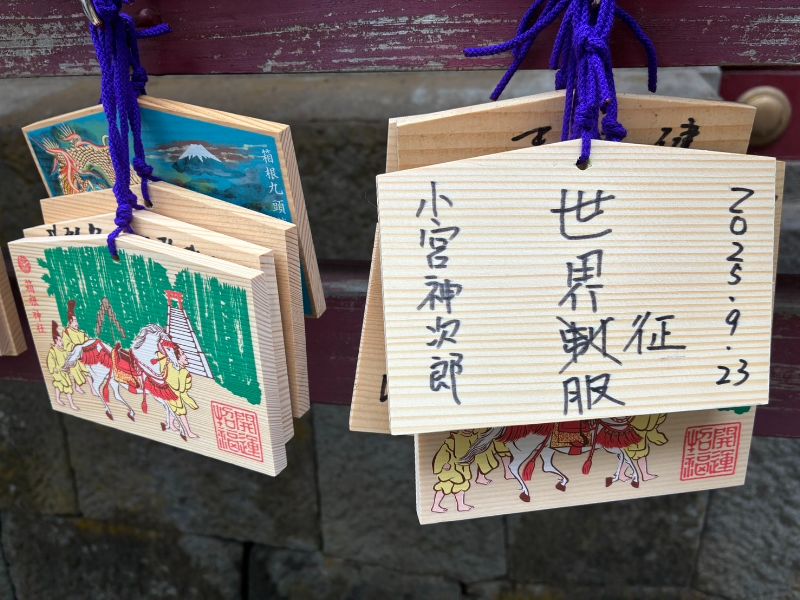 箱根九頭
箱根神社
開運
招福
健
2025.9.23
世界征服
小宮神次郎
開運
招福